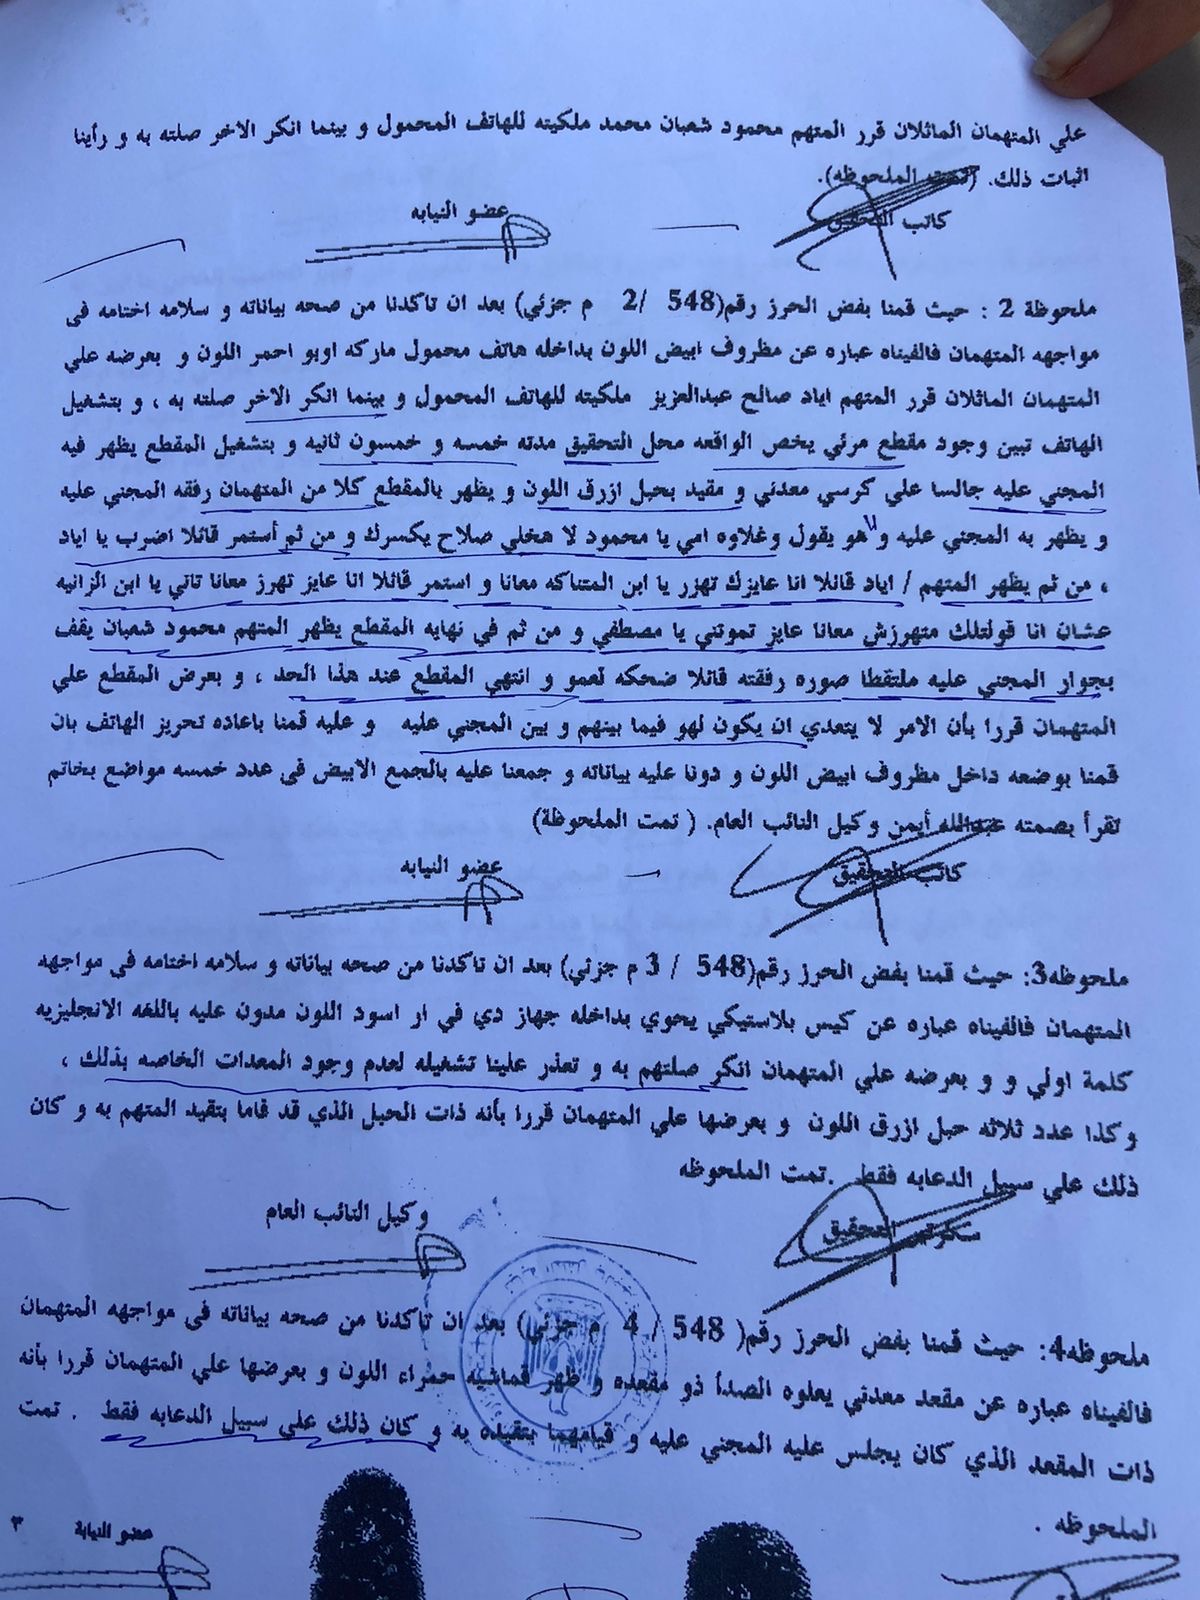 علي المتهمان الماثلان قرر المتهم محمود شعبان محمد ملكيته للهاتف المحمول و بينما انكر الاخر صلته به و رأينا
اثبات ذلك. (تمت الملحوظه).
كاتب التحقيق عضو النيابه
ملحوظة 2 : حيث قمنا بفض الحرز رقم(548 /2 م جزئي) بعد ان تاكدنا من صحه بياناته و سلامه اختامه فى
مواجهه المتهمان فالفيناه عباره عن مظروف ابيض اللون بداخله هاتف محمول ماركه اوبو احمر اللون و بعرضه علي
المتهمان الماثلان قرر المتهم اياد صالح عبدالعزيز ملكيته للهاتف المحمول و بينما انكر الاخر صلته به ، و بتشغيل
الهاتف تبين وجود مقطع مرئي يخص الواقعه محل التحقيق مدته خمسه و خمسون ثانيه و بتشغيل المقطع يظهر فيه
المجني عليه جالسا علي كرسي معدني و مقيد بحبل ازرق اللون و يظهر بالمقطع كلا من المتهمان رفقه المجني عليه
و يظهر به المجني عليه و هو يقول وغلاوه امي يا محمود لا هخلي صلاح يكسرك و من ثم أستمر قائلا اضرب يا اياد
، من ثم يظهر المتهم / اياد قائلا انا عايزك تهزر يا ابن المتناكه معانا و استمر قائلا انا عايز تهرز معانا تاني يا ابن الزانيه
عشان انا قولتلك متهرزش معانا عايز تموتني يا مصطفي و من ثم في نهايه المقطع يظهر المتهم محمود شعبان يقف
بجوار المجني عليه ملتقطا صوره رفقته قائلا ضحكه لعمو و انتهي المقطع عند هذا الحد ، و بعرض المقطع علي
المتهمان قررا بأن الامر لا يتعدي ان يكون لهو فيما بينهم و بين المجني عليه و عليه قمنا باعاده تحريز الهاتف بان
قمنا بوضعه داخل مظروف ابيض اللون و دونا عليه بياناته و جمعنا عليه بالجمع الابيض فى عدد خمسه مواضع بخاتم
تقرأ بصمته عبدالله أيمن وكيل النائب العام. ( تمت الملحوظة)
كاتب التحقيق عضو النيابه
ملحوظه3: حيث قمنا بفض الحرز رقم(548 / 3 م جزئي) بعد ان تاكدنا من صحه بياناته و سلامه اختامه فى مواجهه
المتهمان فالفيناه عباره عن كيس بلاستيكي يحوي بداخله جهاز دي في ار اسود اللون مدون عليه باللغه الانجليزيه
كلمة اولي و و بعرضه علي المتهمان انكر صلتهم به و تعذر علينا تشغيله لعدم وجود المعدات الخاصه بذلك ،
و كذا عدد ثلاثه حبل ازرق اللون و بعرضها علي المتهمان قررا بأنه ذات الحبل الذي قد قاما بتقيد المتهم به و كان
ذلك علي سبيل الدعابه فقط .تمت الملحوظه
سكرتير التحقيق وكيل النائب العام
ملحوظه4: حيث قمنا بفض الحرز رقم( 548 / 4 م جزئي) بعد ان تاكدنا من صحه بياناته فى مواجهه المتهمان
فالفيناه عباره عن مقعد معدني يعلوه الصدأ ذو مقعده و ظهر قماشيه حمراء اللون و بعرضها علي المتهمان قررا بأنه
ذات المقعد الذي كان يجلس عليه المجني عليه و قيامهما بتقيده به و كان ذلك علي سبيل الدعابه فقط . تمت
الملحوظه .
عضو النيابة ٣